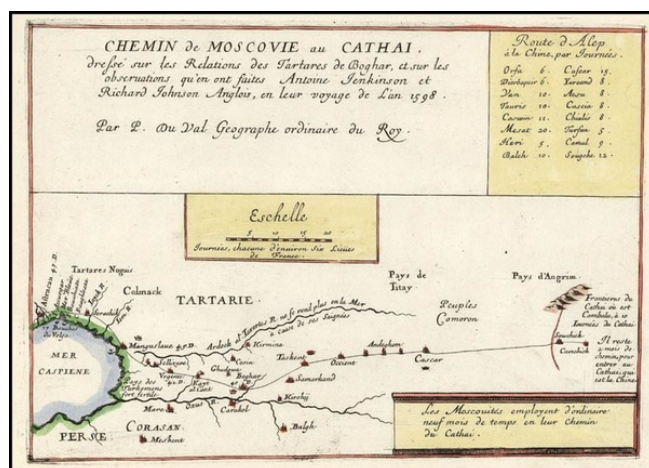 CHEMIN de MOSCOVIE au CATHAI,
dressé sur les Relations des Tartares de Boghar, et sur les
observations qu'en ont faites Antoine Jenkinson et
Richard Johnson Anglois, en leur voyage de L'an 1598.
Par P. Du Val Geographe ordinaire du Roy.
Route d'Alep
à la Chine, par Journées.
Orfa 6. Cascar 15.
6. 8.
Van 10. Acsu 8.
Tauris 10. Cuscia 8.
Caswin 11. Chialis 8.
Mesat 20. Turfan 5.
Heri 5. Camul 9.
Balch 10. 12.
Eschelle
5 10 15 20
Journées, chacune d'environ Six Lieües
de France.
Tartares Nogais
Astracan 47 D.
Colmack
TARTARIE.
Pays de
Titay
Pays d'Angrim
Peuples
Comoron
Frontieres du
Cathai ou est
Cambalu, à 10
Journées du Cathai
Il reste
2 mois de
chemin, pour
entrer au
Cathai, qui
est la Chine
MER
CASPIENE
de Volga
Serachick
Manguslaue 45 D.
Ardock
ne se rend plus en la Mer
à cause de ses Saignées
Kirmina
Cosin
Sellizure
Ghudouan
Boghar
Kayt
Taskent
Occient
Andeghen
Cascar
Samarkand
Pays des
Turkemens
fort fertile
Oxus R.
Carakol
Kershy
Balgh
CORASAN.
Meshent
PERSE
Les Moscovites employent d'ordinaire
neuf mois de temps en leur Chemin
du Cathai.